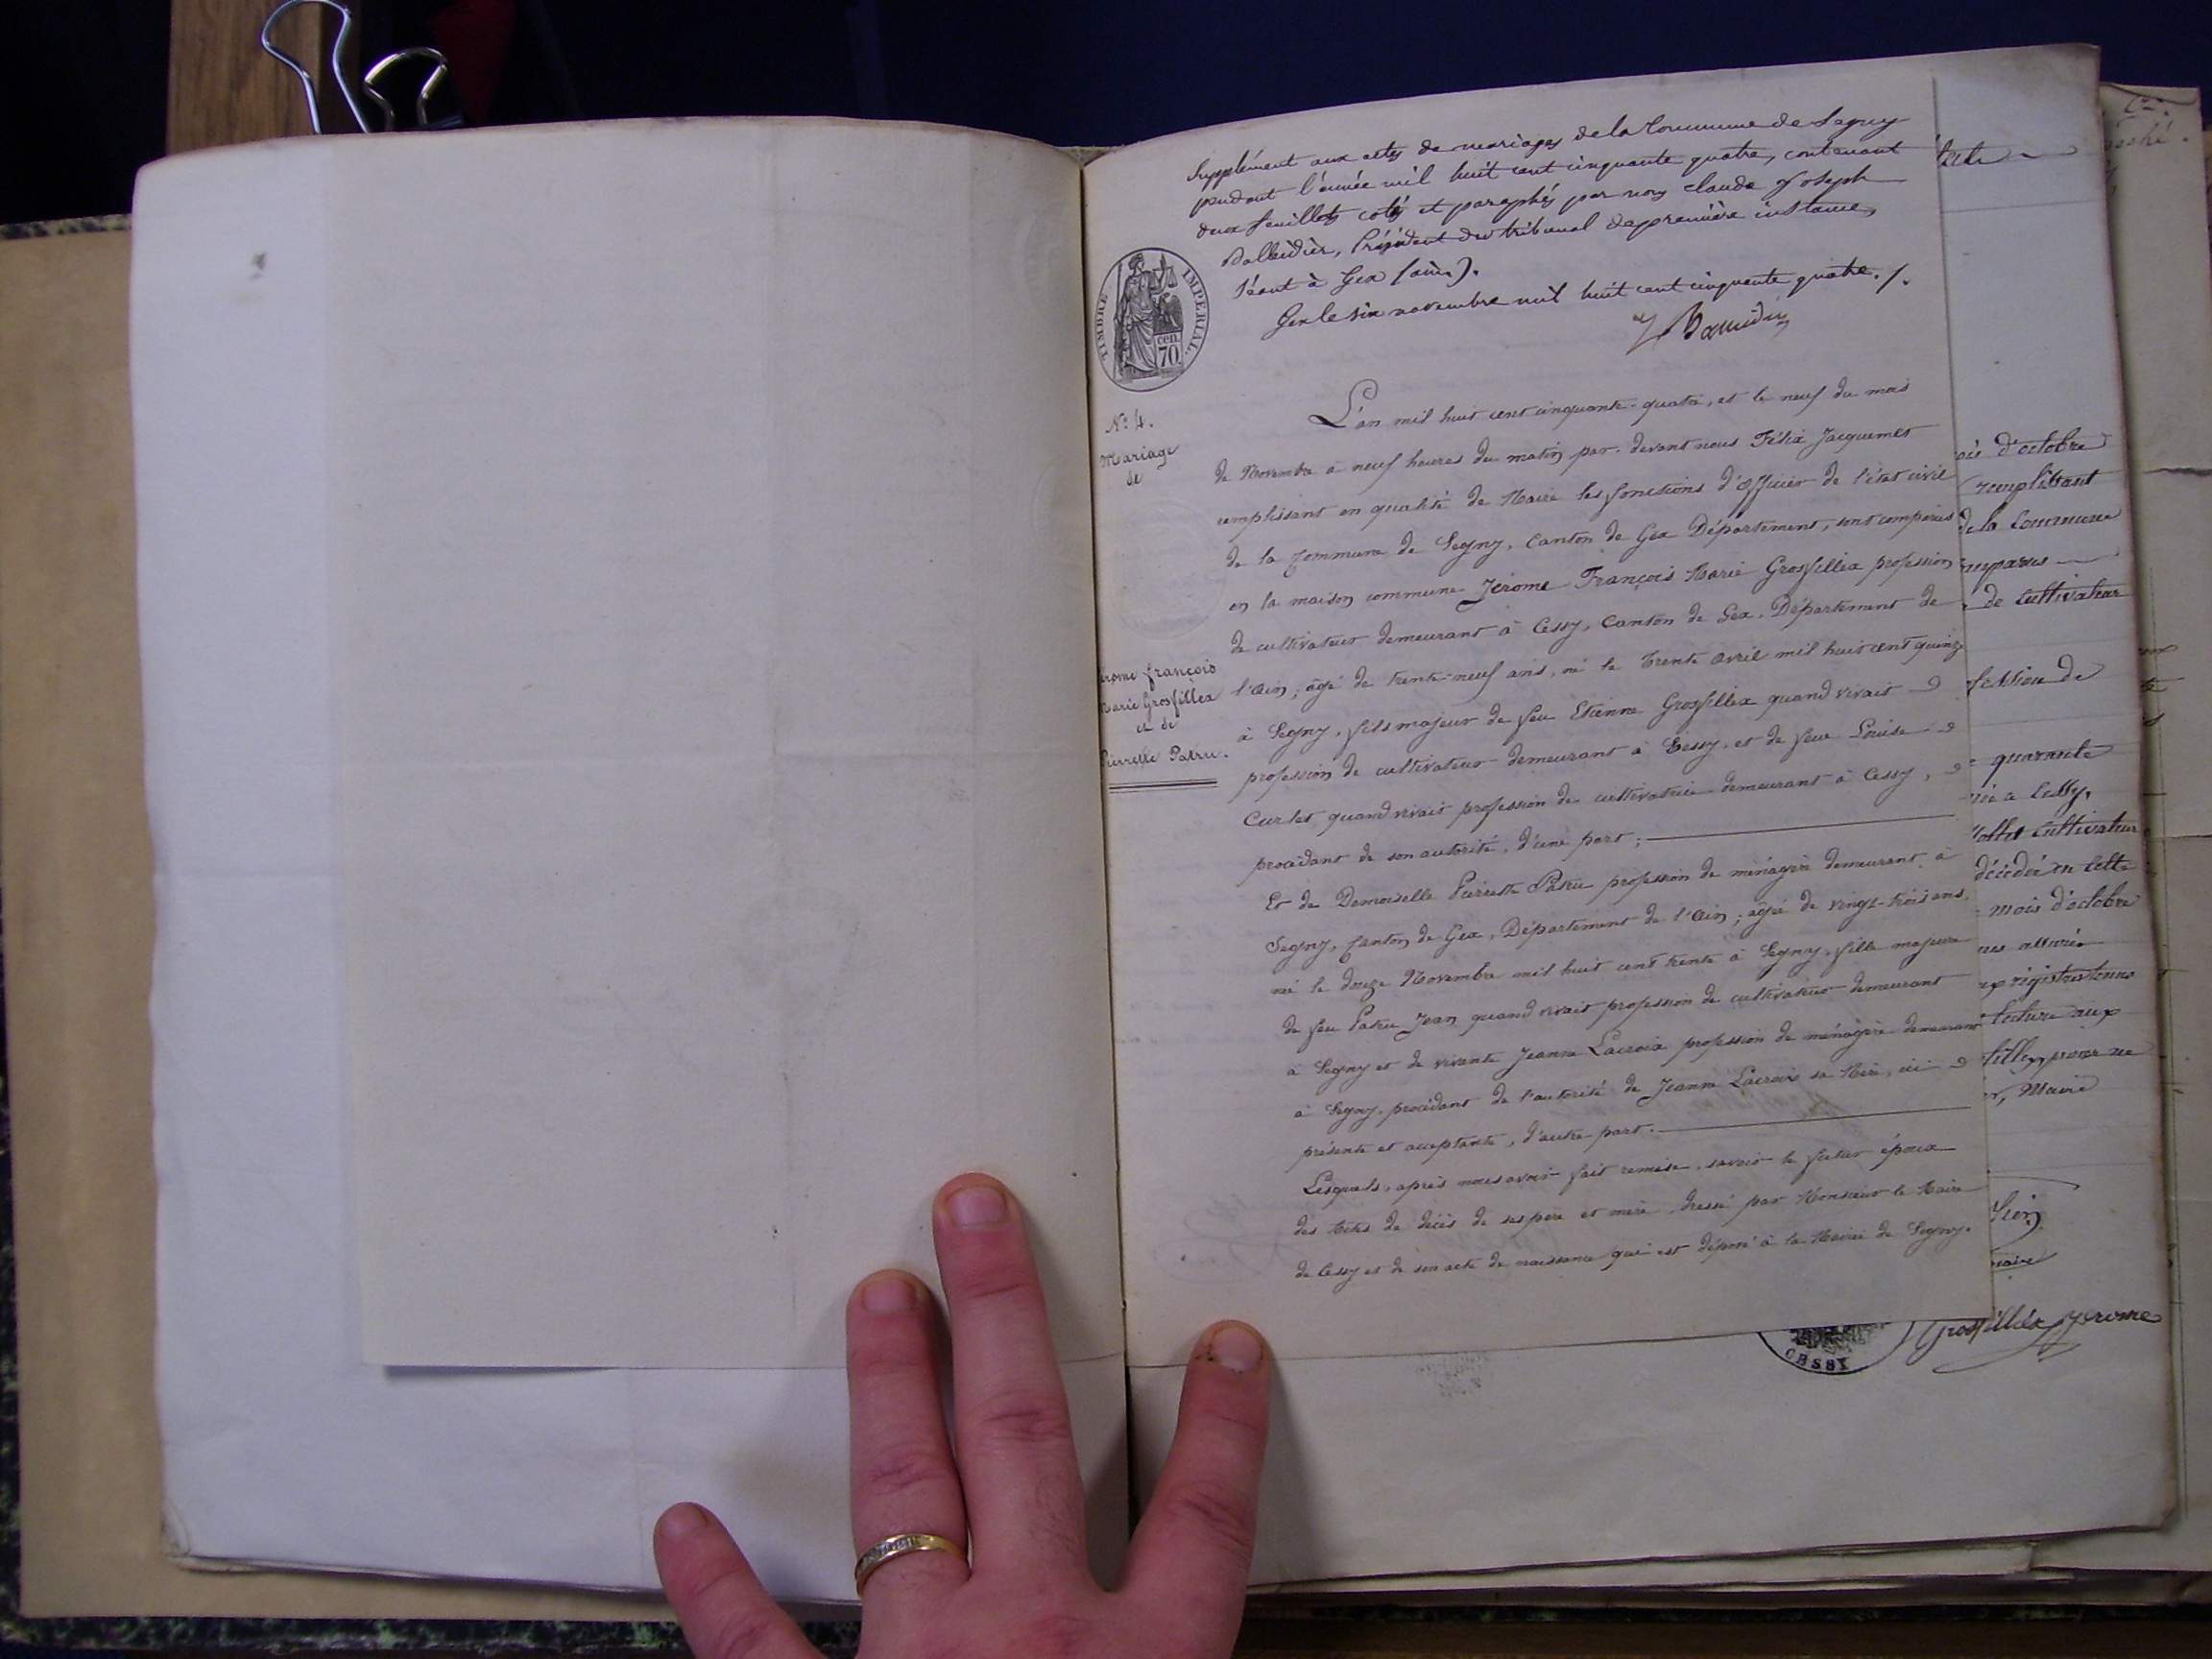 Supplément aux actes de mariages de la Commune de Segny
pendant l'année mil huit cent cinquante quatre, contenant
deux feuillets cotés et paraphés par nous Claude Joseph
Balleidier, Président du tribunal de première instance,
séant à Gex (ain).
Gex le six novembre mil huit cent cinquante quatre./.
TIMBRE IMPERIAL.
cen.
70
N° 4.
Mariage
de
Jérome françois
Marie Grosfillex
et de
Pierrette Patru.
L'an mil huit cent cinquante-quatre, et le neuf du mois
de Novembre à neuf heures du matin par-devant nous Félix Jacquemet
remplissant en qualité de Maire les fonctions d'officier de l'état civil
de la Commune de Segny, Canton de Gex Département, sont comparus
en la maison commune Jérome François Marie Grosfillex profession
de cultivateur demeurant à Cessy, Canton de Gex, Département de
l'Ain; âgé de trente-neuf ans, né le trente avril mil huit cent quinze
à Segny, fils majeur de feu Etienne Grosfillex quand vivait
profession de cultivateur demeurant à Cessy, et de feue Louise
Curlet quand vivait profession de cultivatrice demeurant à Cessy,
procédant de son autorité, d'une part;
Et de Demoiselle Pierrette Patru profession de ménagère demeurant à
Segny, Canton de Gex, Département de l'Ain; âgée de vingt-trois ans,
née le douze Novembre mil huit cent trente à Segny, fille majeure
de feu Patru Jean quand vivait profession de cultivateur demeurant
à Segny et de vivante Jeanne Lacroix profession de ménagère demeurant
à Segny, procédant de l'autorité de Jeanne Lacroix sa Mère, ici
présente et acceptante, d'autre part.
Lesquels, après nous avoir fait remise, savoir le futur époux
des Actes de décès de ses père et mère, dressé par Monsieur le Maire
de Cessy et de son acte de naissance qui est déposé à la Mairie de Segny.
d'octobre
remplissant
de la Commune
de Cultivateur
quarante
à Cessy,
Cultivateur
décédée en cette
mois d'octobre
lecture aux
Maire
Grosfilléx Jerome
CESSY